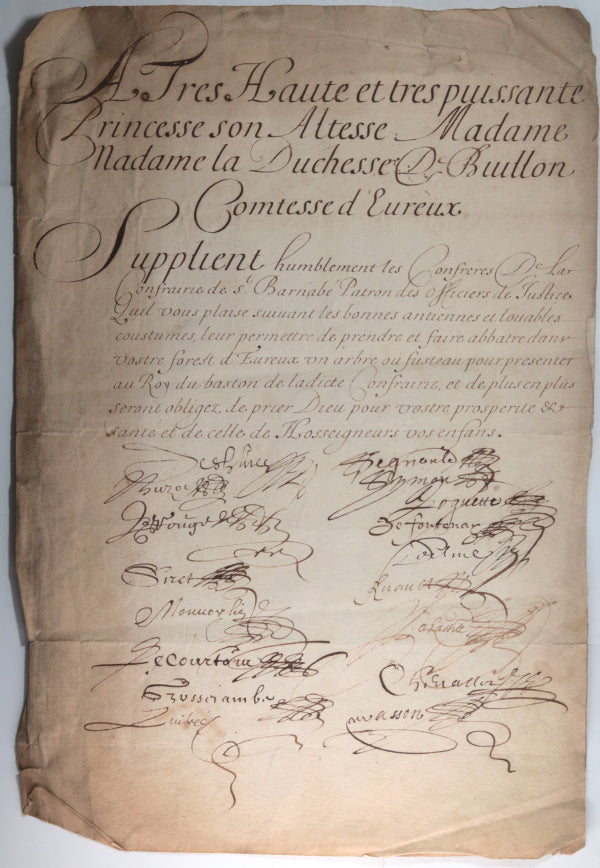 A Tres Haute et tres puissante
Princesse son Altesse Madame
Madame la Duchesse De Buillon
Comtesse d'Eureux
Supplient humblement les Confreres De La
Confrairie de st. Barnabé Patron des officiers de Justice,
Quil vous plaise suiuant les bonnes antiennes et louables
coustumes, leur permettre de prendre et faire abbatre dans
vostre forest d'Eureux vn arbre, ou fusteau pour presenter
au Roy du baston de ladicte Confrairie, et de plus en plus
seront obligez, de prier Dieu pour vostre prosperite &
santé et de celle de Nosseigneurs vos enfans.
Deshaies Regnould
Duymon
Loquette
Lerouge Defontenay
Siret
Ruault
Lecourtois Chevallier
Grosseiambe
Quibec wasson